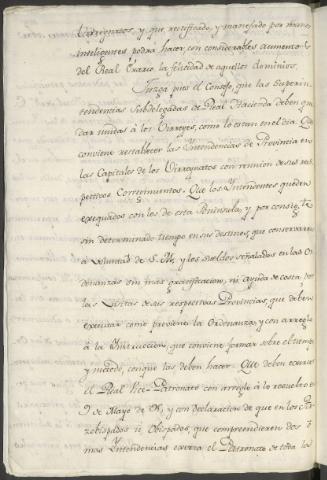 Virreynatos, y que rectificado, y manejado por manos
inteligentes podrá hacer, con considerable aumento
del Real Erario la felicidad de aquellos dominios.
Juzga pues el Consejo, que las Superin
tendencias Subdelegadas de Real Hacienda deben que
dar unidas à los Virreyes, como lo estan en el dia. Que
conviene restablecer las Yntendencias de Provincia en
las Capitales de los Virreynatos con reunion de sus res
pectivos Corregimientos. Que los Yntendentes queden
exequados con los de esta Peninsula, y por consigte
sin determinado tiempo en sus destinos, que conservarán
à voluntad de S. M., y los sueldos señalados en las Or
denanzas sin mas gratificacion, ni ayuda de costa por
las Visitas de sus respectivas Provincias, que deben
executar como previene la Ordenanza, y con arreglo
à la Ynstruccion, que conviene formar sobre el tiempo
y modo, con que las deben hacer. Que deben exercer
el Real Vice-Patronato con arreglo à lo resuelto en
9 de Mayo de 95, y con declaracion de que en los Ar
zobispados ú Obispados, que comprendieren dos ó
mas Yntendencias exerza el Patronato de toda la